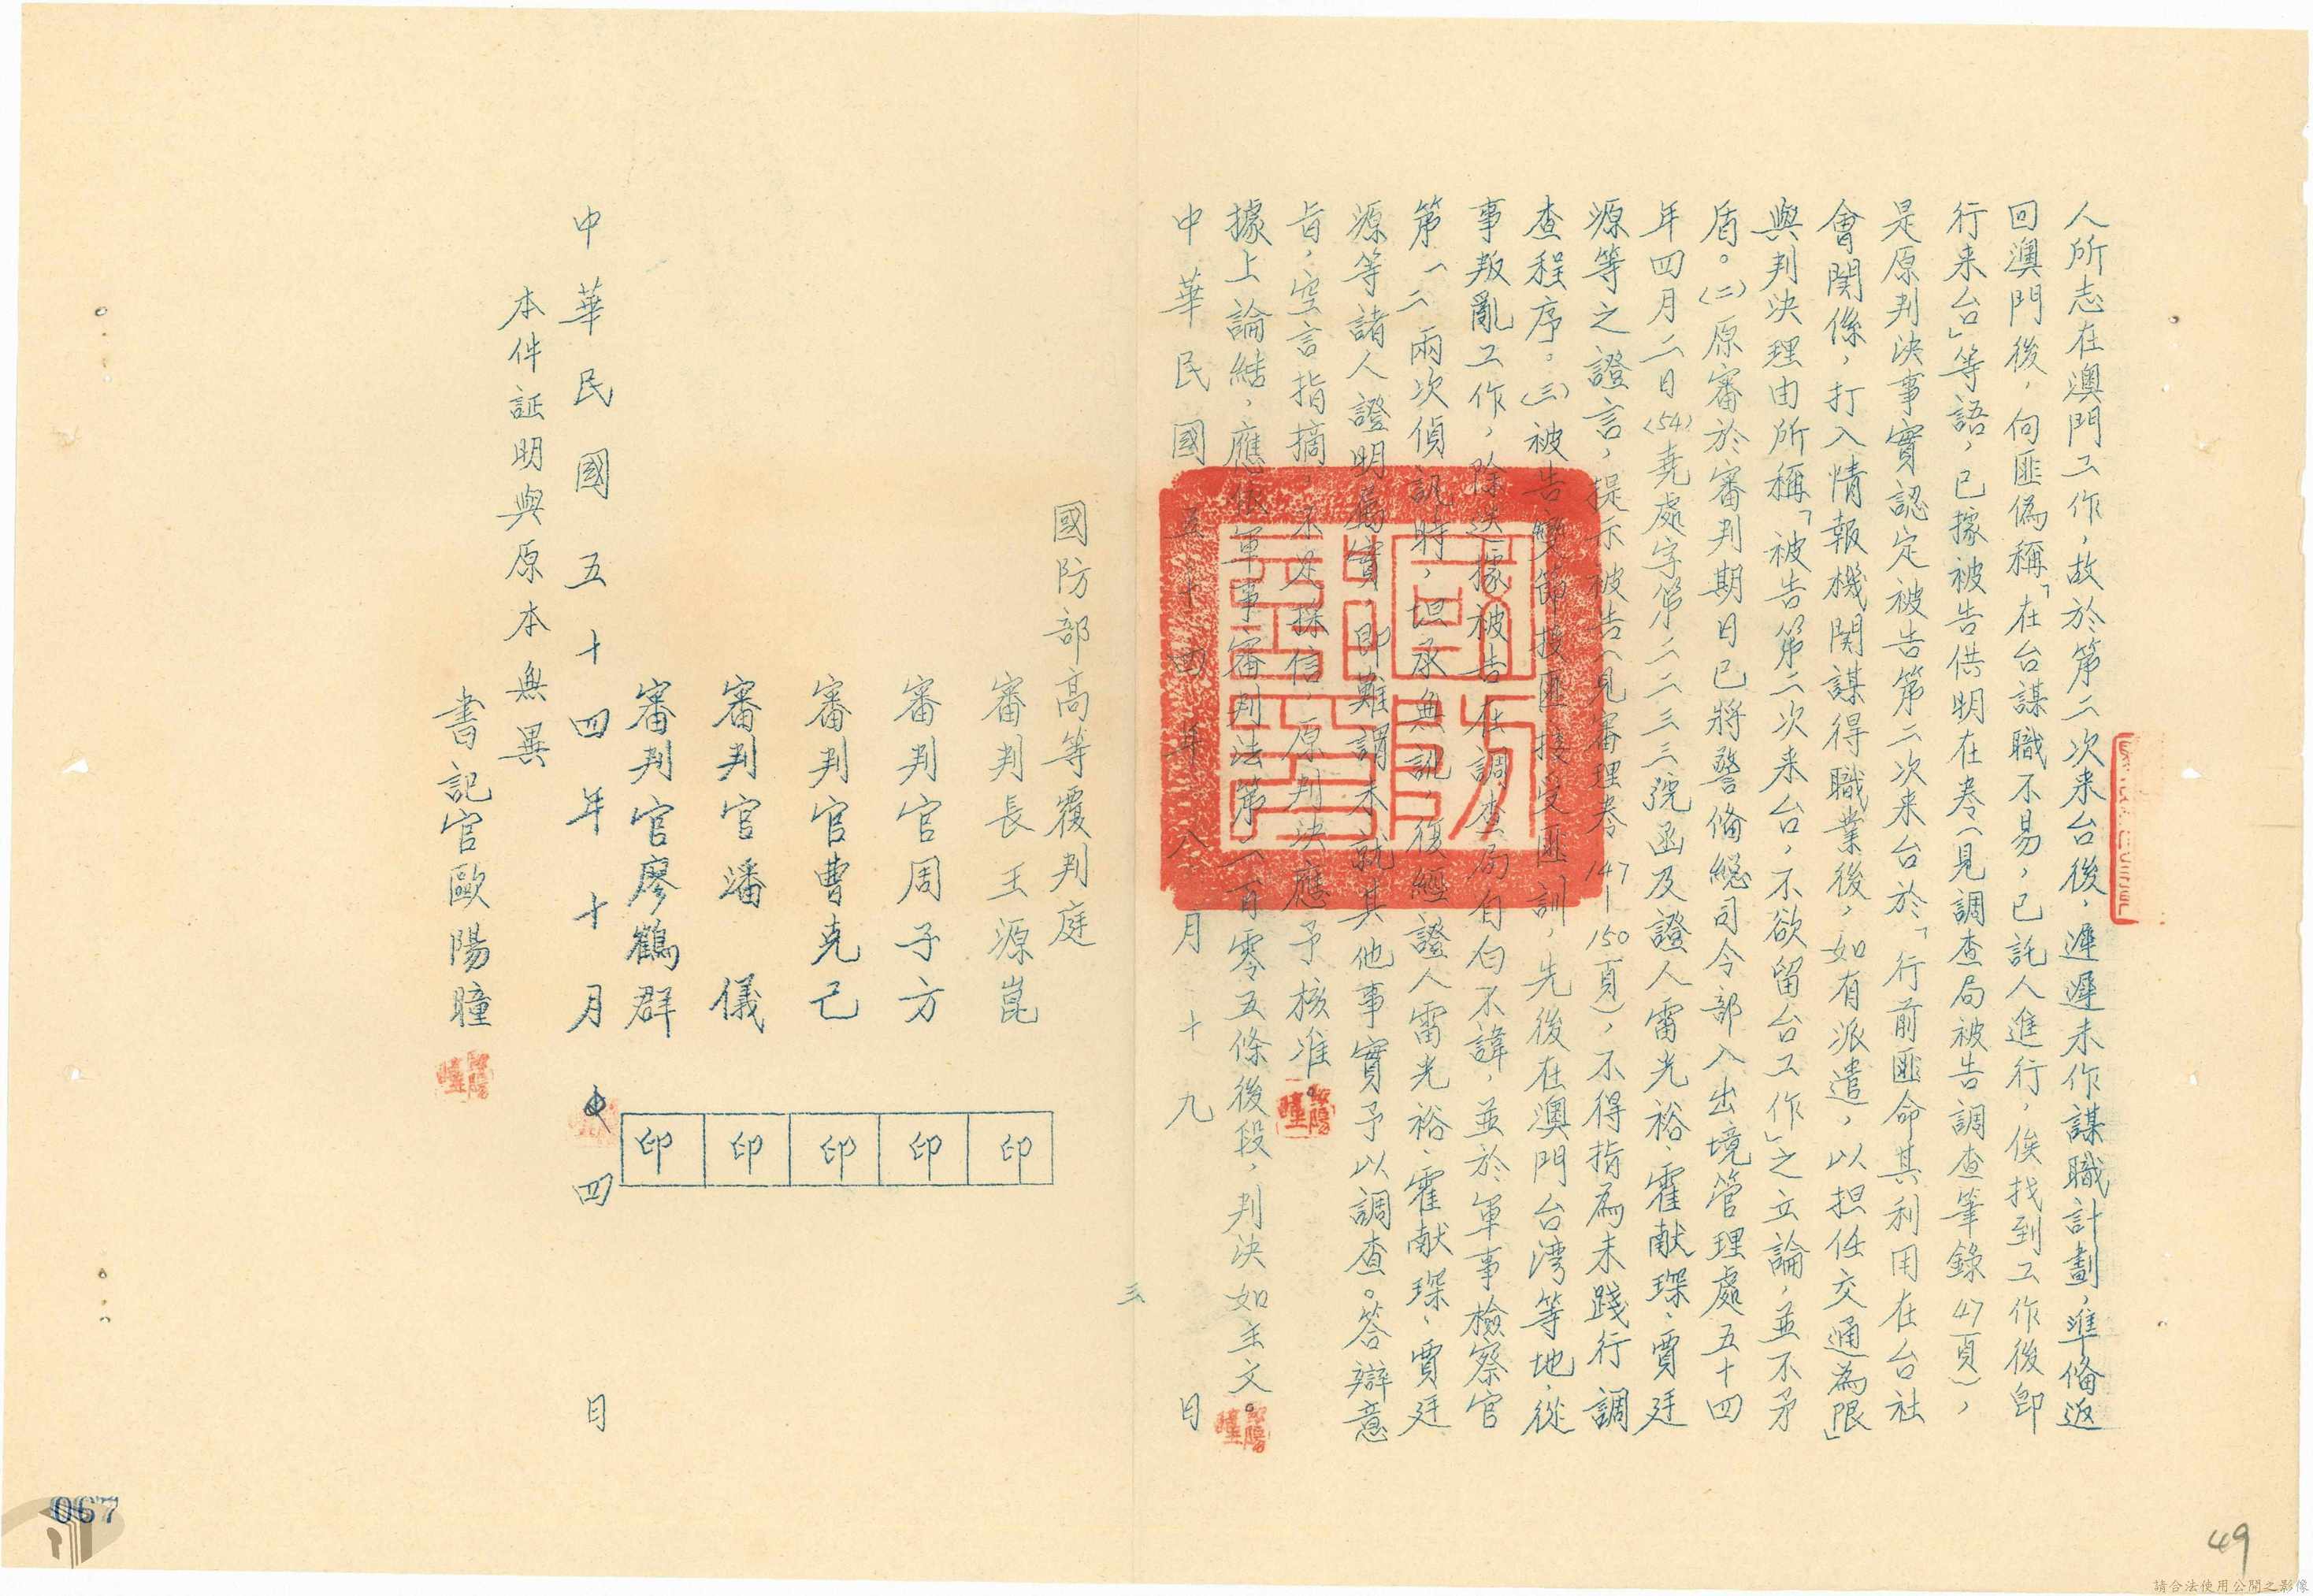 人所志在澳門工作，故於第二次来台後，遲遲未作謀職計劃，準俻返
回澳門後，向匪偽稱「在台謀職不易，已託人進行，俟找到工作後卽
行来台」等語，已據被告供明在卷（見調查局被告調查筆錄47頁），
是原判决事實認定被告第二次来台於「行前匪命其利用在台社
會関係，打入情報機関謀得職業後，如有派遣，以担任交通為限」
與判决理由所稱「被告第二次来台，不欲留台工作」之立論，並不矛
盾。(二)原審於審判期日已將警俻總司令部入出境管理處五十四
年四月二日(54)堯處字第二二三三號函及證人雷光裕、霍献琛、賈廷
源等之證言，提示被告（見審理卷147—150頁），不得指為未踐行調
查程序。(三)被告變節投匪接受匪訓，先後在澳門台湾等地，從
事叛亂工作，除迭據被告在調查局自白不諱，並於軍事檢察官
第一二兩次偵訊時，坦承無訛，復經證人雷光裕、霍献琛、賈廷
源等諸人證明屬實，卽難謂未就其他事實予以調查。答辯意
旨，空言指摘，不足採信，原判决應予核准。
據上論結，應依軍事審判法第二百零五條後段，判决如主文。
中華民國五十四年八月十九日
三
國防部高等覆判庭
審判長王源崑
審判官周子方
審判官曹克己
審判官潘儀
審判官廖鶴群
印
印
印
印
印
中華民國五十四年十月四日
本件証明與原本無異
書記官歐陽瞳
067
49
請合法使用公開之影像